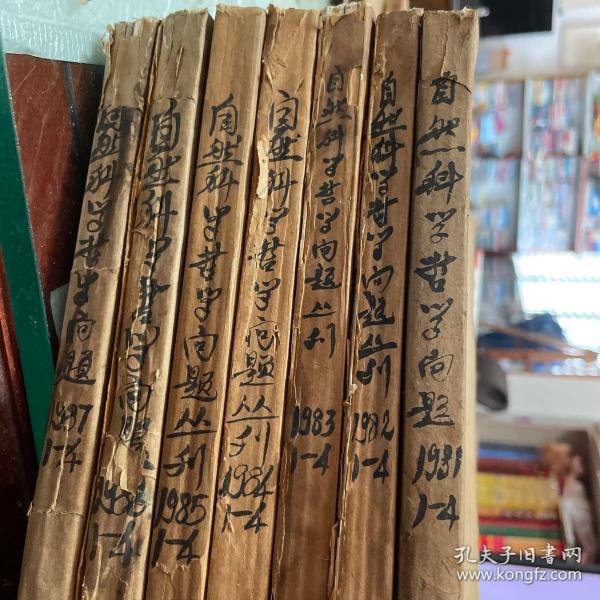 自然科学哲学问题
1987
1-4
自然科学哲学问题
1986
1-4
自然科学哲学问题丛刊
1985
1-4
自然科学哲学问题丛刊
1984
1-4
自然科学哲学问题丛刊
1983
1-4
自然科学哲学问题丛刊
1982
1-4
自然科学哲学问题
1981
1-4
孔夫子旧书网
www.kongfz.com